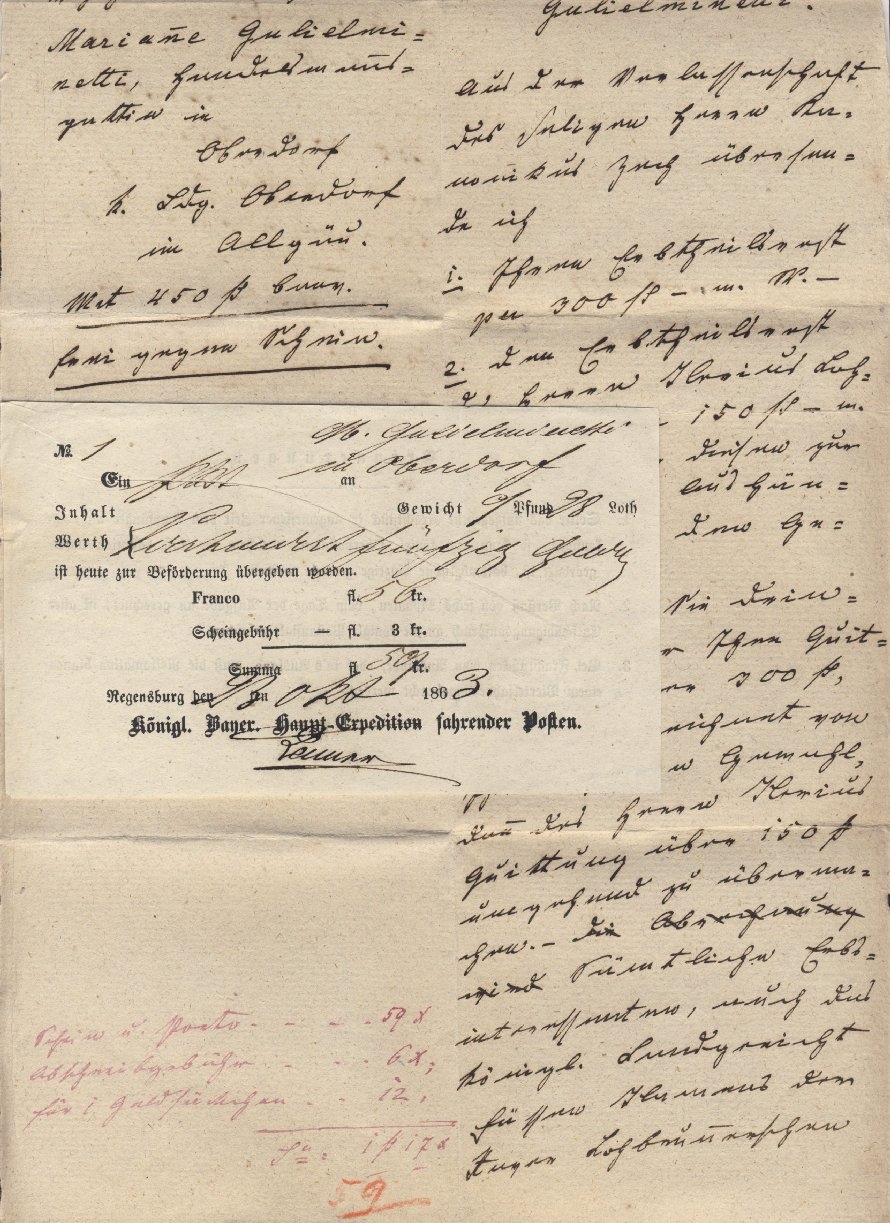 Mariañe Gulielmi=
netti, Handelsmanns=
gattin in
Oberdorf
k. Ldg. Oberdorf
im Allgäu.
Mit 450 fl baar.
frei gegen Schein.
Gulielminetti.
Aus der Verlassenschaft
des seligen Herrn Ka=
nonikus Zech übersen=
de ich
1. Ihren Erbtheilsrest
per 300 fl – m. W. –
2. den Erbtheilsrest
Herrn
Loh=
150 fl – m.
diesen zur
Aushän=
den Ge=
Sie drin=
Ihre Quit=
300 fl,
eichnet von
n Gemahl,
dañ des Herrn
Quittung über 150 fl
umgehend zu überma=
chen. – Die Abrechnung
wird Sämtliche Erbs=
interessenten, auch das
königl. Landgericht
Füssen Namens der
№ 1
M. Gulielminetti
Ein an in Oberdorf
Inhalt Gewicht Pfund 28 Loth
Werth Vierhundert fünfzig Gulden
ist heute zur Beförderung übergeben worden.
Franco fl. 56 kr.
Scheingebühr — fl. 3 kr.
Summa fl. 59 kr.
Regensburg den 23 ten Okt 1863.
Königl. Bayer. Haupt-Expedition fahrender Posten.
Schein u. Porto - - - - 59 x
Abschreibgebühr - - - 6 x;
für 1 Geldsäckchen - - 12,
Sa = 1 fl 17 x
59